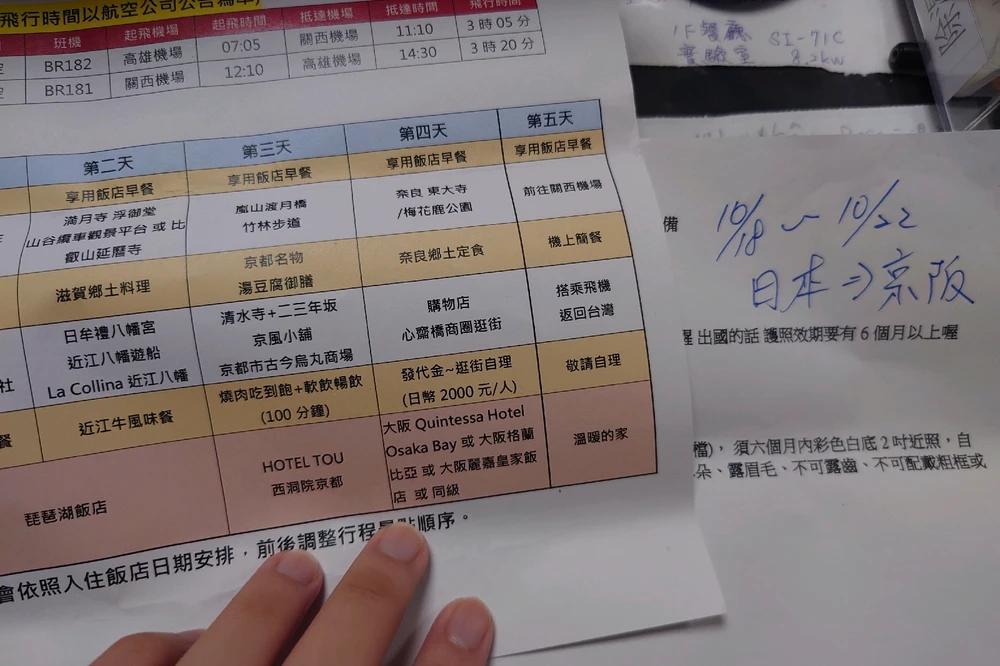 飛行時間以航空公司公告為準)
班機 起飛機場 起飛時間 抵達機場 抵達時間 飛行時間
BR182 高雄機場 07:05 關西機場 11:10 3 時 05 分
BR181 關西機場 12:10 高雄機場 14:30 3 時 20 分
第二天 第三天 第四天 第五天
享用飯店早餐 享用飯店早餐 享用飯店早餐 享用飯店早餐
滿月寺 浮御堂
山谷纜車觀景平台 或 比
叡山延曆寺
嵐山渡月橋
竹林步道
奈良 東大寺
/梅花鹿公園
前往關西機場
滋賀鄉土料理
京都名物
湯豆腐御膳
奈良鄉土定食
機上簡餐
日牟禮八幡宮
近江八幡遊船
La Collina 近江八幡
清水寺+二三年坂
京風小舖
京都市古今烏丸商場
購物店
心齋橋商圈逛街
搭乘飛機
返回台灣
社
餐
近江牛風味餐
燒肉吃到飽+軟飲暢飲
(100 分鐘)
發代金~逛街自理
(日幣 2000 元/人)
敬請自理
琵琶湖飯店
HOTEL TOU
西洞院京都
大阪 Quintessa Hotel
Osaka Bay 或 大阪格蘭
比亞 或 大阪麗嘉皇家飯
店 或 同級
溫暖的家
會依照入住飯店日期安排，前後調整行程景點順序。
1F
SI-71C
實驗室
8.2kW
備
10/18 ~ 10/22
日本⇒京阪
出國的話 護照效期要有 6 個月以上喔
檔)， 須六個月內彩色白底 2 吋近照，自
朵、露眉毛、不可露齒、不可配戴粗框或